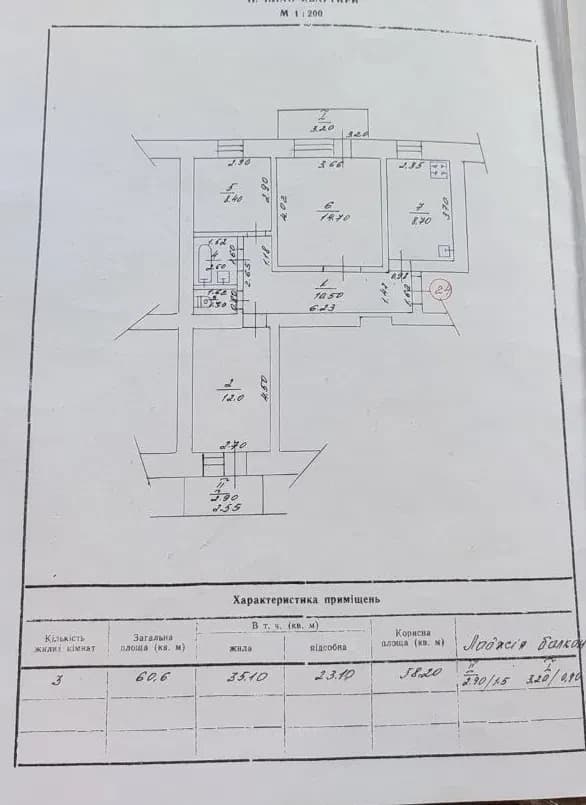 М 1 : 200
I
3.20
3.20
2.90
3.66
2.35
5
8.40
2.90
4.03
6
14.70
7
8.70
3.70
1.62
4
2.60
1.60
1.18
2.65
0.98
1
10.50
6.23
1.42
1.62
24
1.62
0.80
2
12.0
4.50
2.70
II
2.90
2.55
Характеристика приміщень
Кількість жилих кімнат
Загальна площа (кв. м)
В т. ч. (кв. м)
жила
підсобна
Корисна площа (кв. м)
Лоджія балкон
3
60,6
35.10
23.10
58.20
II
2.90/1.5
I
3.20/0,90